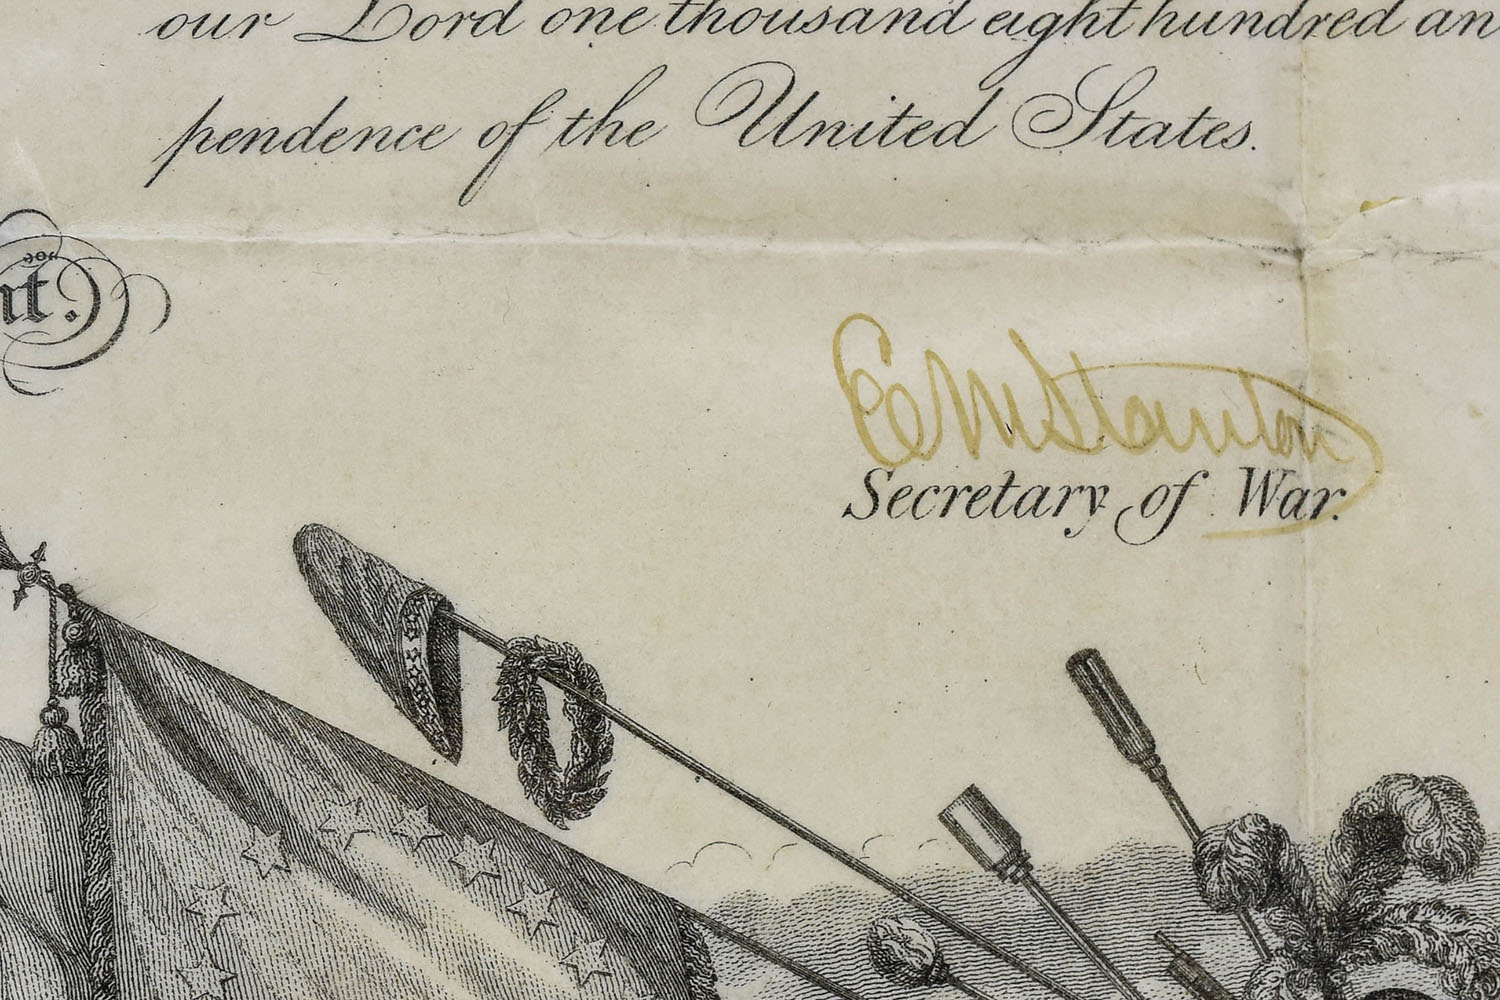 our Lord one thousand eight hundred an
pendence of the United States.
nt.)
EMStanton
Secretary of War.